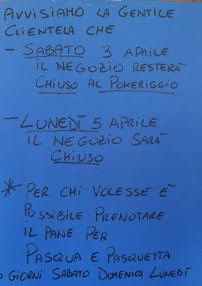 AVVISIAMO LA GENTILE
CLIENTELA CHE
- SABATO 3 APRILE
IL NEGOZIO RESTERÀ
CHIUSO AL POMERIGGIO
- LUNEDÌ 5 APRILE
IL NEGOZIO SARÀ
CHIUSO
* PER CHI VOLESSE È
POSSIBILE PRENOTARE
IL PANE PER
PASQUA E PASQUETTA
GIORNI SABATO DOMENICA LUNEDÌ